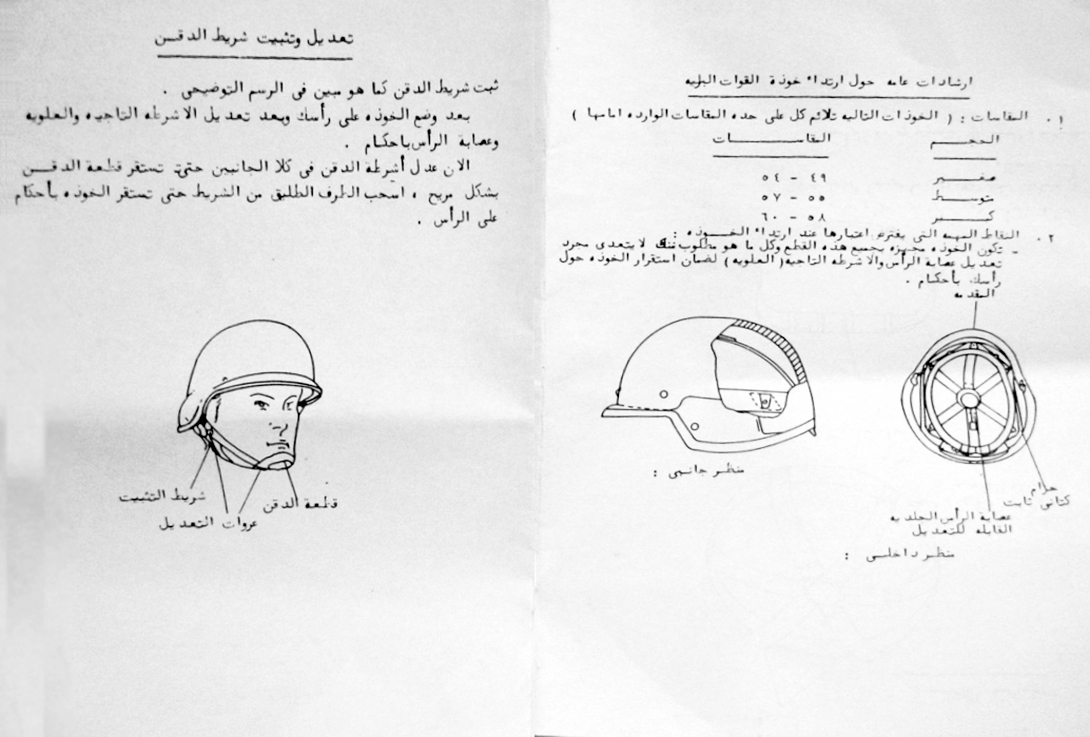 ارشادات عامه حول ارتداء خوذة القوات البريه
١٠ المقاسات : ( الخوذات التاليه تلائم كل على حده المقاسات الوارده امامها )
الحجم المقاسات
صغير ٤٩ - ٥٤
متوسط ٥٥ - ٥٧
كبير ٥٨ - ٦٠
٢٠ النقاط المهمه التى يفترض اعتبارها عند ارتداء الخوذه :
- تكون الخوذه مجهزه بجميع هذه القطع وكل ما هو مطلوب منك لا يتعدى مجرد
تعديل عصابة الرأس والاشرطه التاجيه ( العلويه ) لضمان استقرار الخوذه حول
رأسك بأحكام .
المقدمه
حزام
كتانى ثابت
عصابة الرأس الجلديه
القابله للتعديل
منظر جانبى :
منظر داخلى :
تعديل وتثبيت شريط الدقن
ثبت شريط الدقن كما هو مبين فى الرسم التوضيحى .
بعد وضع الخوذه على رأسك وبعد تعديل الاشرطه التاجيه والعلويه
وعصابة الرأس باحكام .
الان عدل أشرطة الدقن فى كلا الجانبين حتى تستقر قطعة الدقن
بشكل مريح ، اسحب الطرف الطليق من الشريط حتى تستقر الخوذه بأحكام
على الرأس .
شريط التثبيت
قطعة الدقن
عروات التعديل